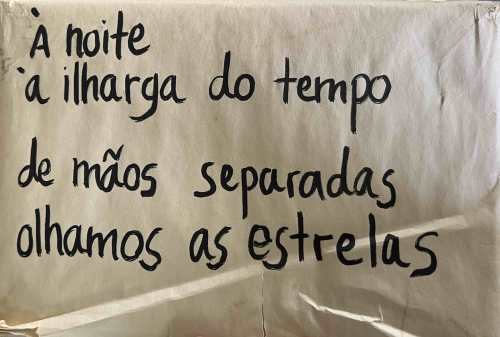 À noite
à ilharga do tempo
de mãos separadas
olhamos as estrelas